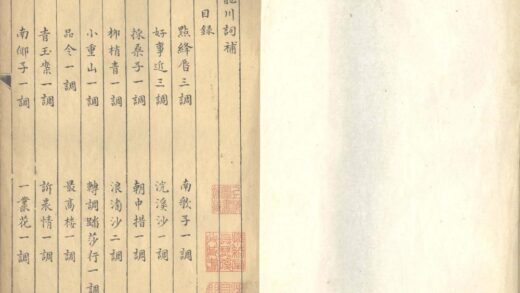 龍川詞補
目錄
點絳唇三調　南歌子一調
好事近三調　浣溪沙一調
採桑子一調　朝中措一調
柳梢青一調　浪淘沙二調
小重山一調　轉調踏莎行一調
品令一調　最高樓一調
青玉案一調　訴衷情一調
南鄉子一調　一叢花一調